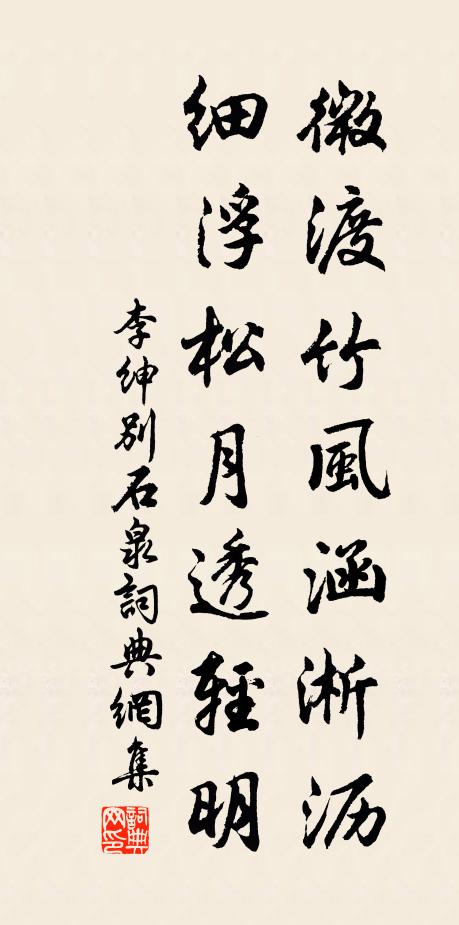 微渡竹風涵淅沥
細浮松月透輕明
李紳别石泉詞典網集
詞典网印